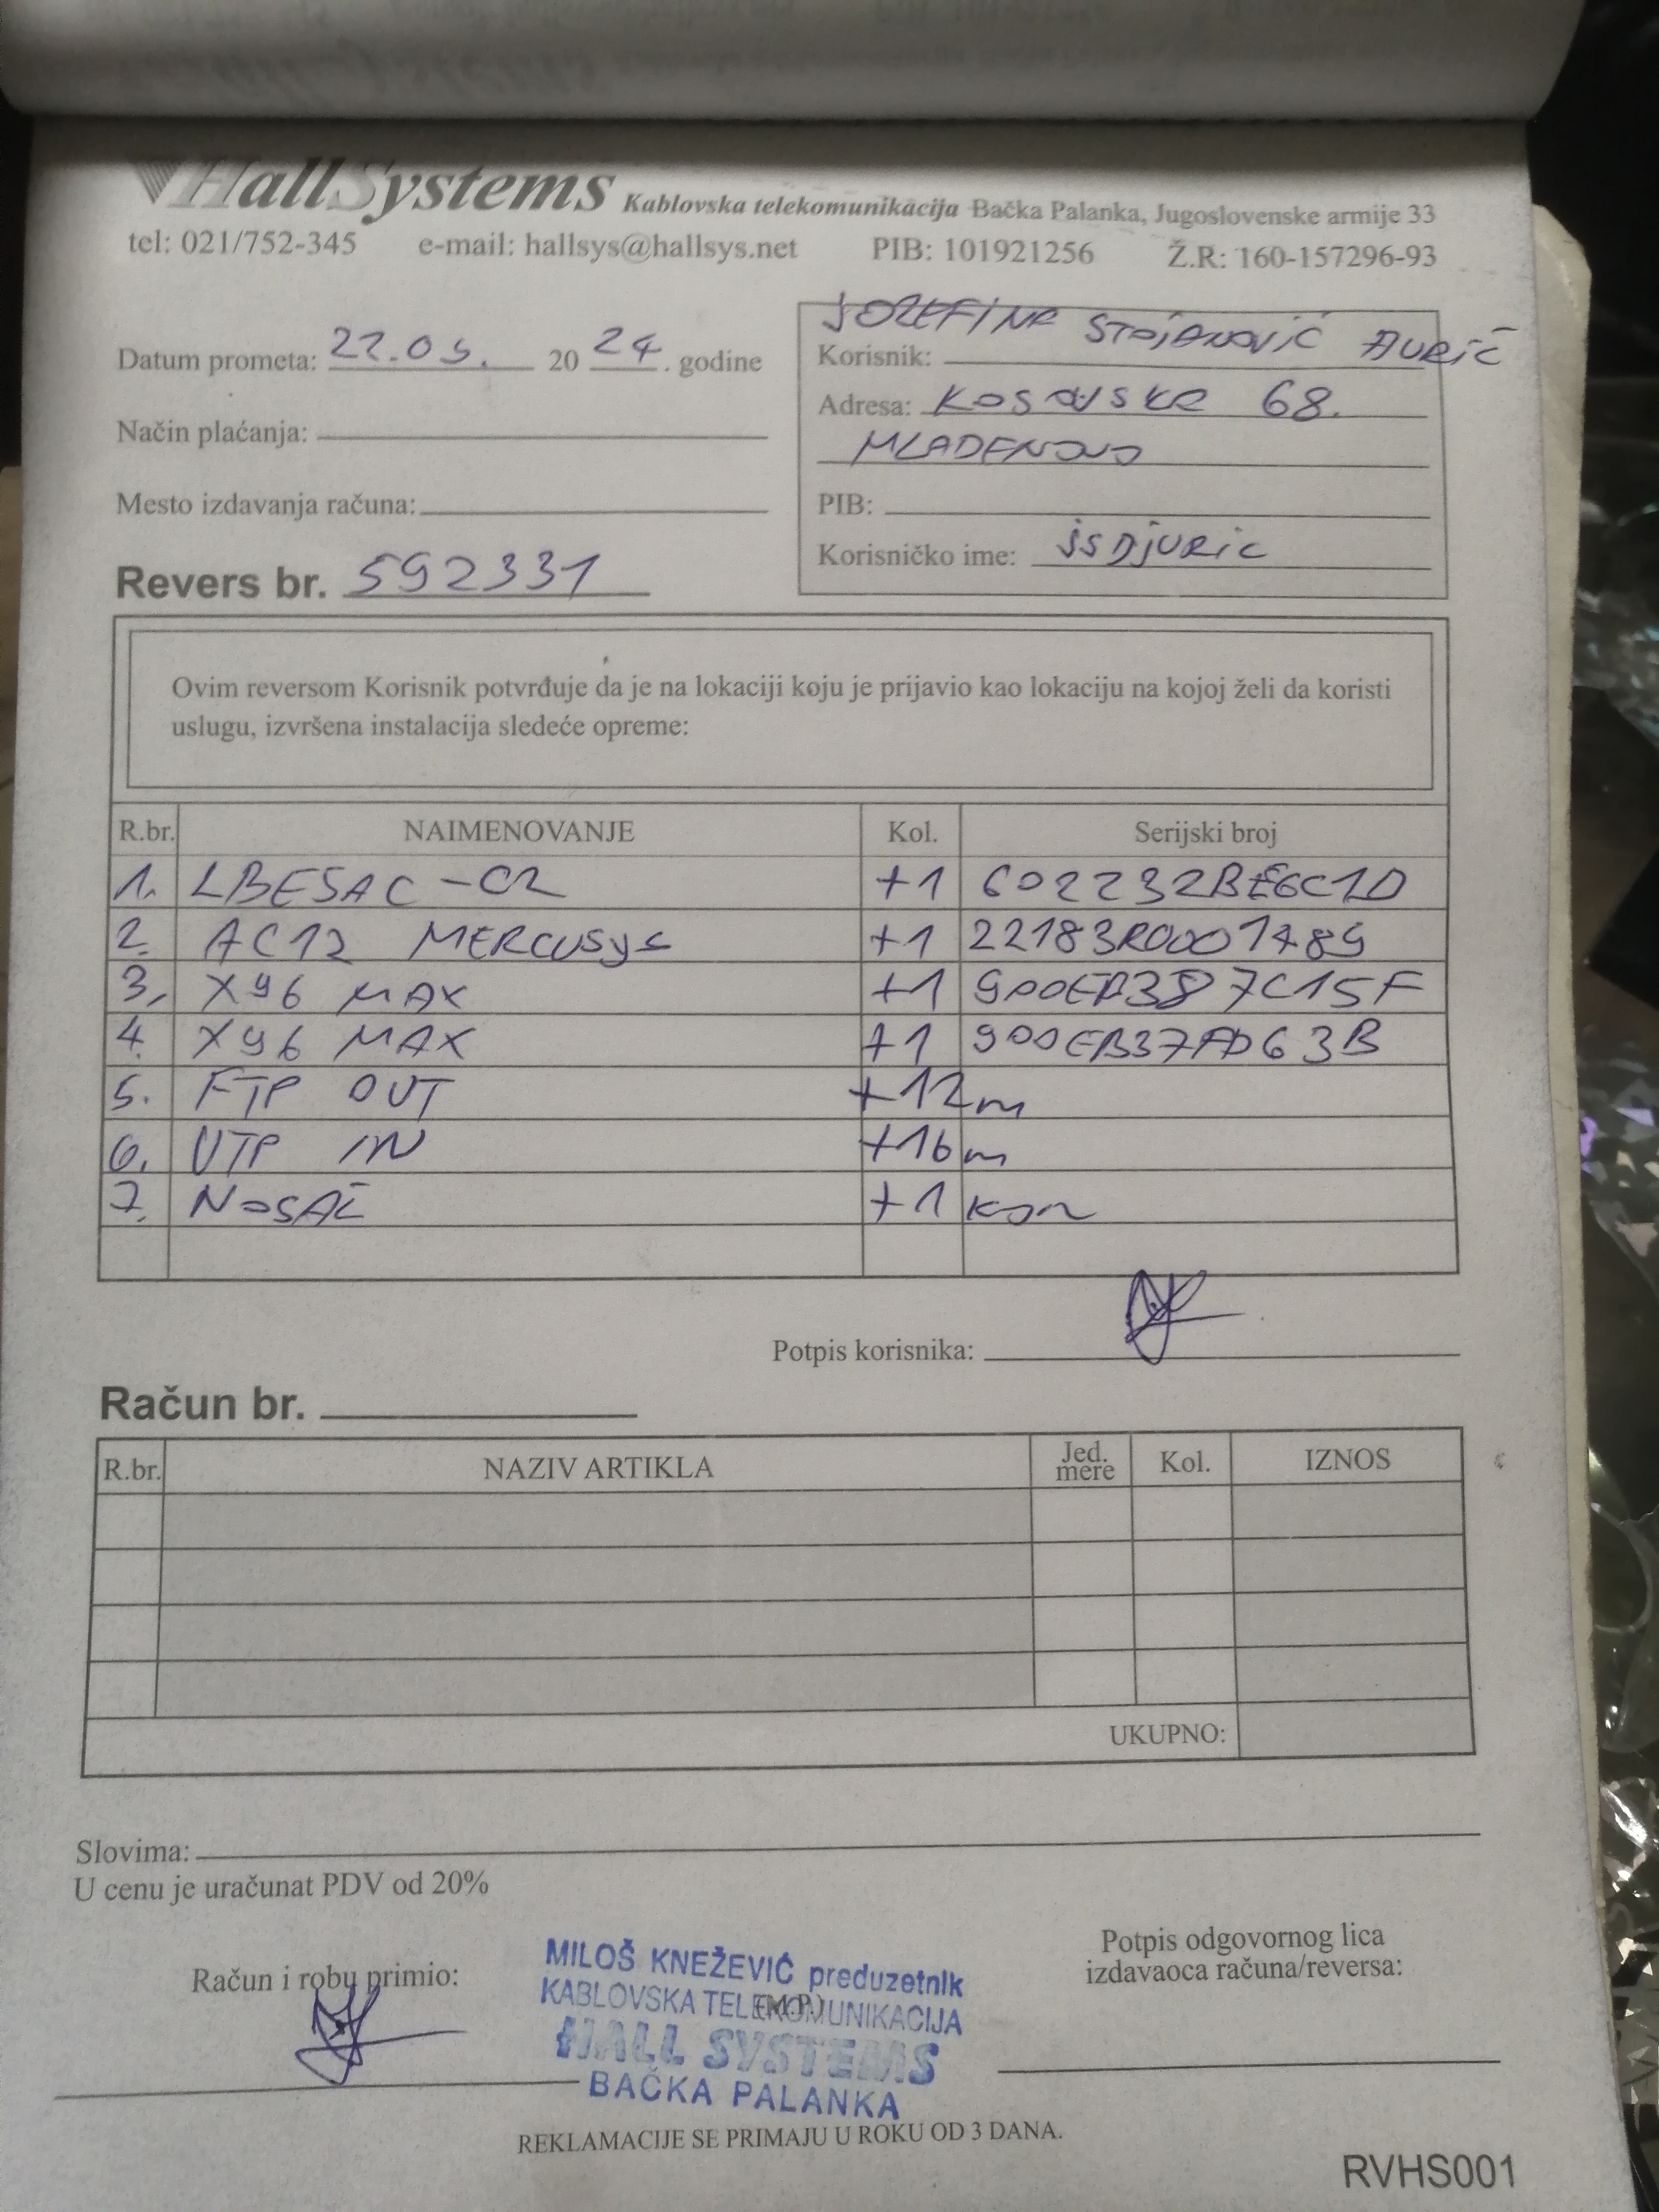 HallSystems Kablovska telekomunikacija Bačka Palanka, Jugoslovenske armije 33
tel: 021/752-345 e-mail: hallsys@hallsys.net PIB: 101921256 Ž.R: 160-157296-93
Datum prometa: 22.05. 20 24. godine
Način plaćanja:
Mesto izdavanja računa:
Revers br. 592331
JOZEFINA STOJANOVIĆ ĐURIĆ
Korisnik:
Adresa: KOSOVSKA 68.
MLADENOVO
PIB:
Korisničko ime: jSDjURiC
Ovim reversom Korisnik potvrđuje da je na lokaciji koju je prijavio kao lokaciju na kojoj želi da koristi
uslugu, izvršena instalacija sledeće opreme:
R.br. NAIMENOVANJE Kol. Serijski broj
1. LBE5AC-C2 +1 602232BE6C1D
2. AC12 MERCUSYS +1 22183R0001489
3. X96 MAX +1 900EB387C15F
4. X96 MAX +1 900EB37FD63B
5. FTP OUT +12m
6. UTP IN +16m
7. NOSAČ +1 kom
Potpis korisnika:
Račun br.
R.br. NAZIV ARTIKLA Jed. mere Kol. IZNOS
UKUPNO:
Slovima:
U cenu je uračunat PDV od 20%
Račun i robu primio:
MILOŠ KNEŽEVIĆ preduzetnik
KABLOVSKA TELEKOMUNIKACIJA
(M.P.)
HALL SYSTEMS
BAČKA PALANKA
Potpis odgovornog lica
izdavaoca računa/reversa:
REKLAMACIJE SE PRIMAJU U ROKU OD 3 DANA.
RVHS001